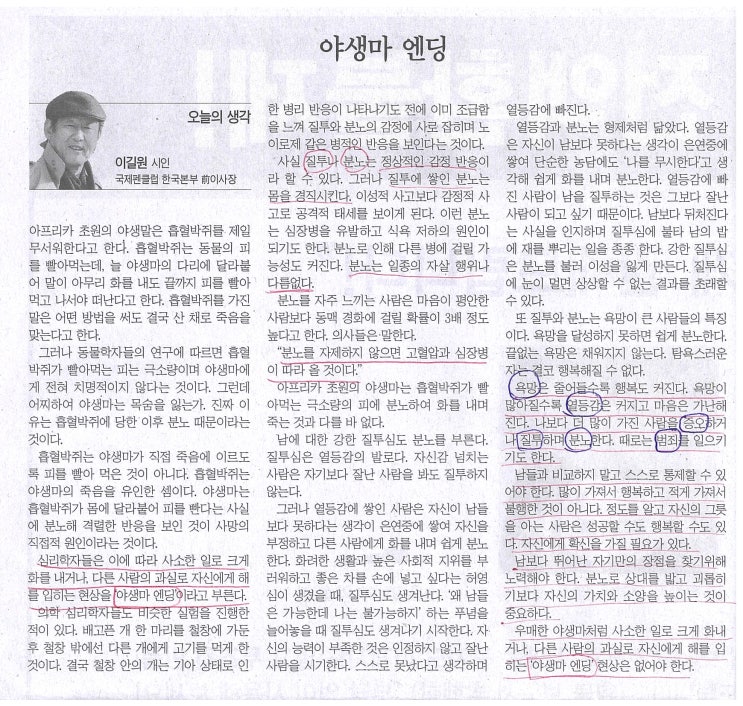 야생마 엔딩
오늘의 생각
이길원 시인
국제펜클럽 한국본부 前이사장
아프리카 초원의 야생말은 흡혈박쥐를 제일
무서워한다고 한다. 흡혈박쥐는 동물의 피
를 빨아먹는데, 늘 야생마의 다리에 달라붙
어 말이 아무리 화를 내도 끝까지 피를 빨아
먹고 나서야 떠난다고 한다. 흡혈박쥐를 가진
말은 어떤 방법을 써도 결국 산 채로 죽음을
맞는다고 한다.
그러나 동물학자들의 연구에 따르면 흡혈
박쥐가 빨아먹는 피는 극소량이며 야생마에
게 전혀 치명적이지 않다는 것이다. 그런데
어찌하여 야생마는 목숨을 잃는가. 진짜 이
유는 흡혈박쥐에 당한 이후 분노 때문이라는
것이다.
흡혈박쥐는 야생마가 직접 죽음에 이르도
록 피를 빨아 먹은 것이 아니다. 흡혈박쥐는
야생마의 죽음을 유인한 셈이다. 야생마는
흡혈박쥐가 몸에 달라붙어 피를 빤다는 사실
에 분노해 격렬한 반응을 보인 것이 사망의
직접적 원인이라는 것이다.
심리학자들은 이에 따라 사소한 일로 크게
화를 내거나, 다른 사람의 과실로 자신에게 해
를 입히는 현상을 '야생마 엔딩'이라고 부른다.
의학 심리학자들도 비슷한 실험을 진행한
적이 있다. 배고픈 개 한 마리를 철창에 가둔
후 철창 밖에선 다른 개에게 고기를 먹게 한
것이다. 결국 철창 안의 개는 기아 상태로 인
한 병리 반응이 나타나기도 전에 이미 조급함
을 느껴 질투와 분노의 감정에 사로 잡히며 노
이로제 같은 병적인 반응을 보인다는 것이다.
사실 질투나 분노는 정상적인 감정 반응이
라 할 수 있다. 그러나 질투에 쌓인 분노는
몸을 경직시킨다. 이성적 사고보다 감정적 사
고로 공격적 태세를 보이게 된다. 이런 분노
는 심장병을 유발하고 식욕 저하의 원인이
되기도 한다. 분노로 인해 다른 병에 걸릴 가
능성도 커진다. 분노는 일종의 자살 행위나
다름없다.
분노를 자주 느끼는 사람은 마음이 평안한
사람보다 동맥 경화에 걸릴 확률이 3배 정도
높다고 한다. 의사들은 말한다.
"분노를 자제하지 않으면 고혈압과 심장병
이 따라 올 것이다."
아프리카 초원의 야생마는 흡혈박쥐가 빨
아먹는 극소량의 피에 분노하여 화를 내며
죽는 것과 다를 바 없다.
남에 대한 강한 질투심도 분노를 부른다.
질투심은 열등감의 발로다. 자신감 넘치는
사람은 자기보다 잘난 사람을 봐도 질투하지
않는다.
그러나 열등감에 쌓인 사람은 자신이 남들
보다 못하다는 생각이 은연중에 쌓여 자신을
부정하고 다른 사람에게 화를 내며 쉽게 분노
한다. 화려한 생활과 높은 사회적 지위를 부
러워하고 좋은 차를 손에 넣고 싶다는 허영
심이 생겼을 때, 질투심도 생겨난다. '왜 남들
은 가능한데 나는 불가능하지' 하는 푸념을
늘어놓을 때 질투심도 생겨나기 시작한다. 자
신의 능력이 부족한 것은 인정하지 않고 잘난
사람을 시기한다. 스스로 못났다고 생각하며
열등감에 빠진다.
열등감과 분노는 형제처럼 닮았다. 열등감
은 자신이 남보다 못하다는 생각이 은연중에
쌓여 단순한 농담에도 '나를 무시한다'고 생
각해 쉽게 화를 내며 분노한다. 열등감에 빠
진 사람이 남을 질투하는 것은 그보다 잘난
사람이 되고 싶기 때문이다. 남보다 뒤처진다
는 사실을 인지하며 질투심에 불타 남의 밥
에 재를 뿌리는 일을 종종 한다. 강한 질투심
은 분노를 불러 이성을 잃게 만든다. 질투심
에 눈이 멀면 상상할 수 없는 결과를 초래할
수 있다.
또 질투와 분노는 욕망이 큰 사람들의 특징
이다. 욕망을 달성하지 못하면 쉽게 분노한다.
끝없는 욕망은 채워지지 않는다. 탐욕스러운
자는 결코 행복해질 수 없다.
욕망은 줄어들수록 행복도 커진다. 욕망이
많아질수록 열등감은 커지고 마음은 가난해
진다. 나보다 더 많이 가진 사람을 증오하거
나 질투하며 분노한다. 때로는 범죄를 일으키
기도 한다.
남들과 비교하지 말고 스스로 통제할 수 있
어야 한다. 많이 가져서 행복하고 적게 가져서
불행한 것이 아니다. 정도를 알고 자신의 그릇
을 아는 사람은 성공할 수도 행복할 수도 있
다. 자신에게 확신을 가질 필요가 있다.
남보다 뛰어난 자기만의 장점을 찾기위해
노력해야 한다. 분노로 상대를 밟고 괴롭히
기보다 자신의 가치와 소양을 높이는 것이
중요하다.
우매한 야생마처럼 사소한 일로 크게 화내
거나, 다른 사람의 과실로 자신에게 해를 입
히는 '야생마 엔딩' 현상은 없어야 한다.